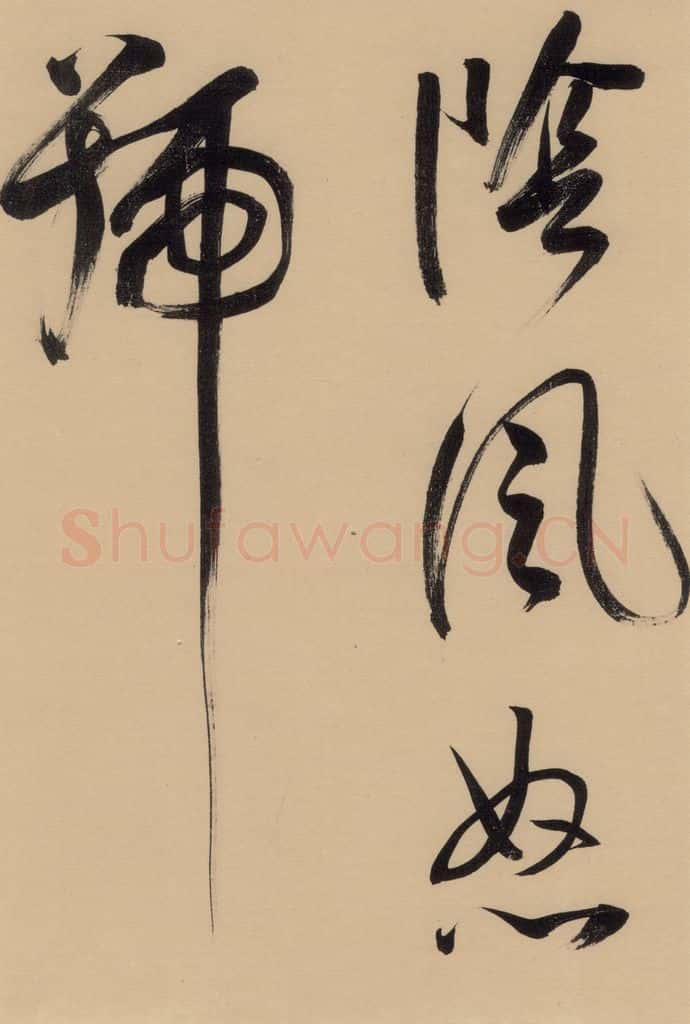 陰風怒
號
Shufawang.CN